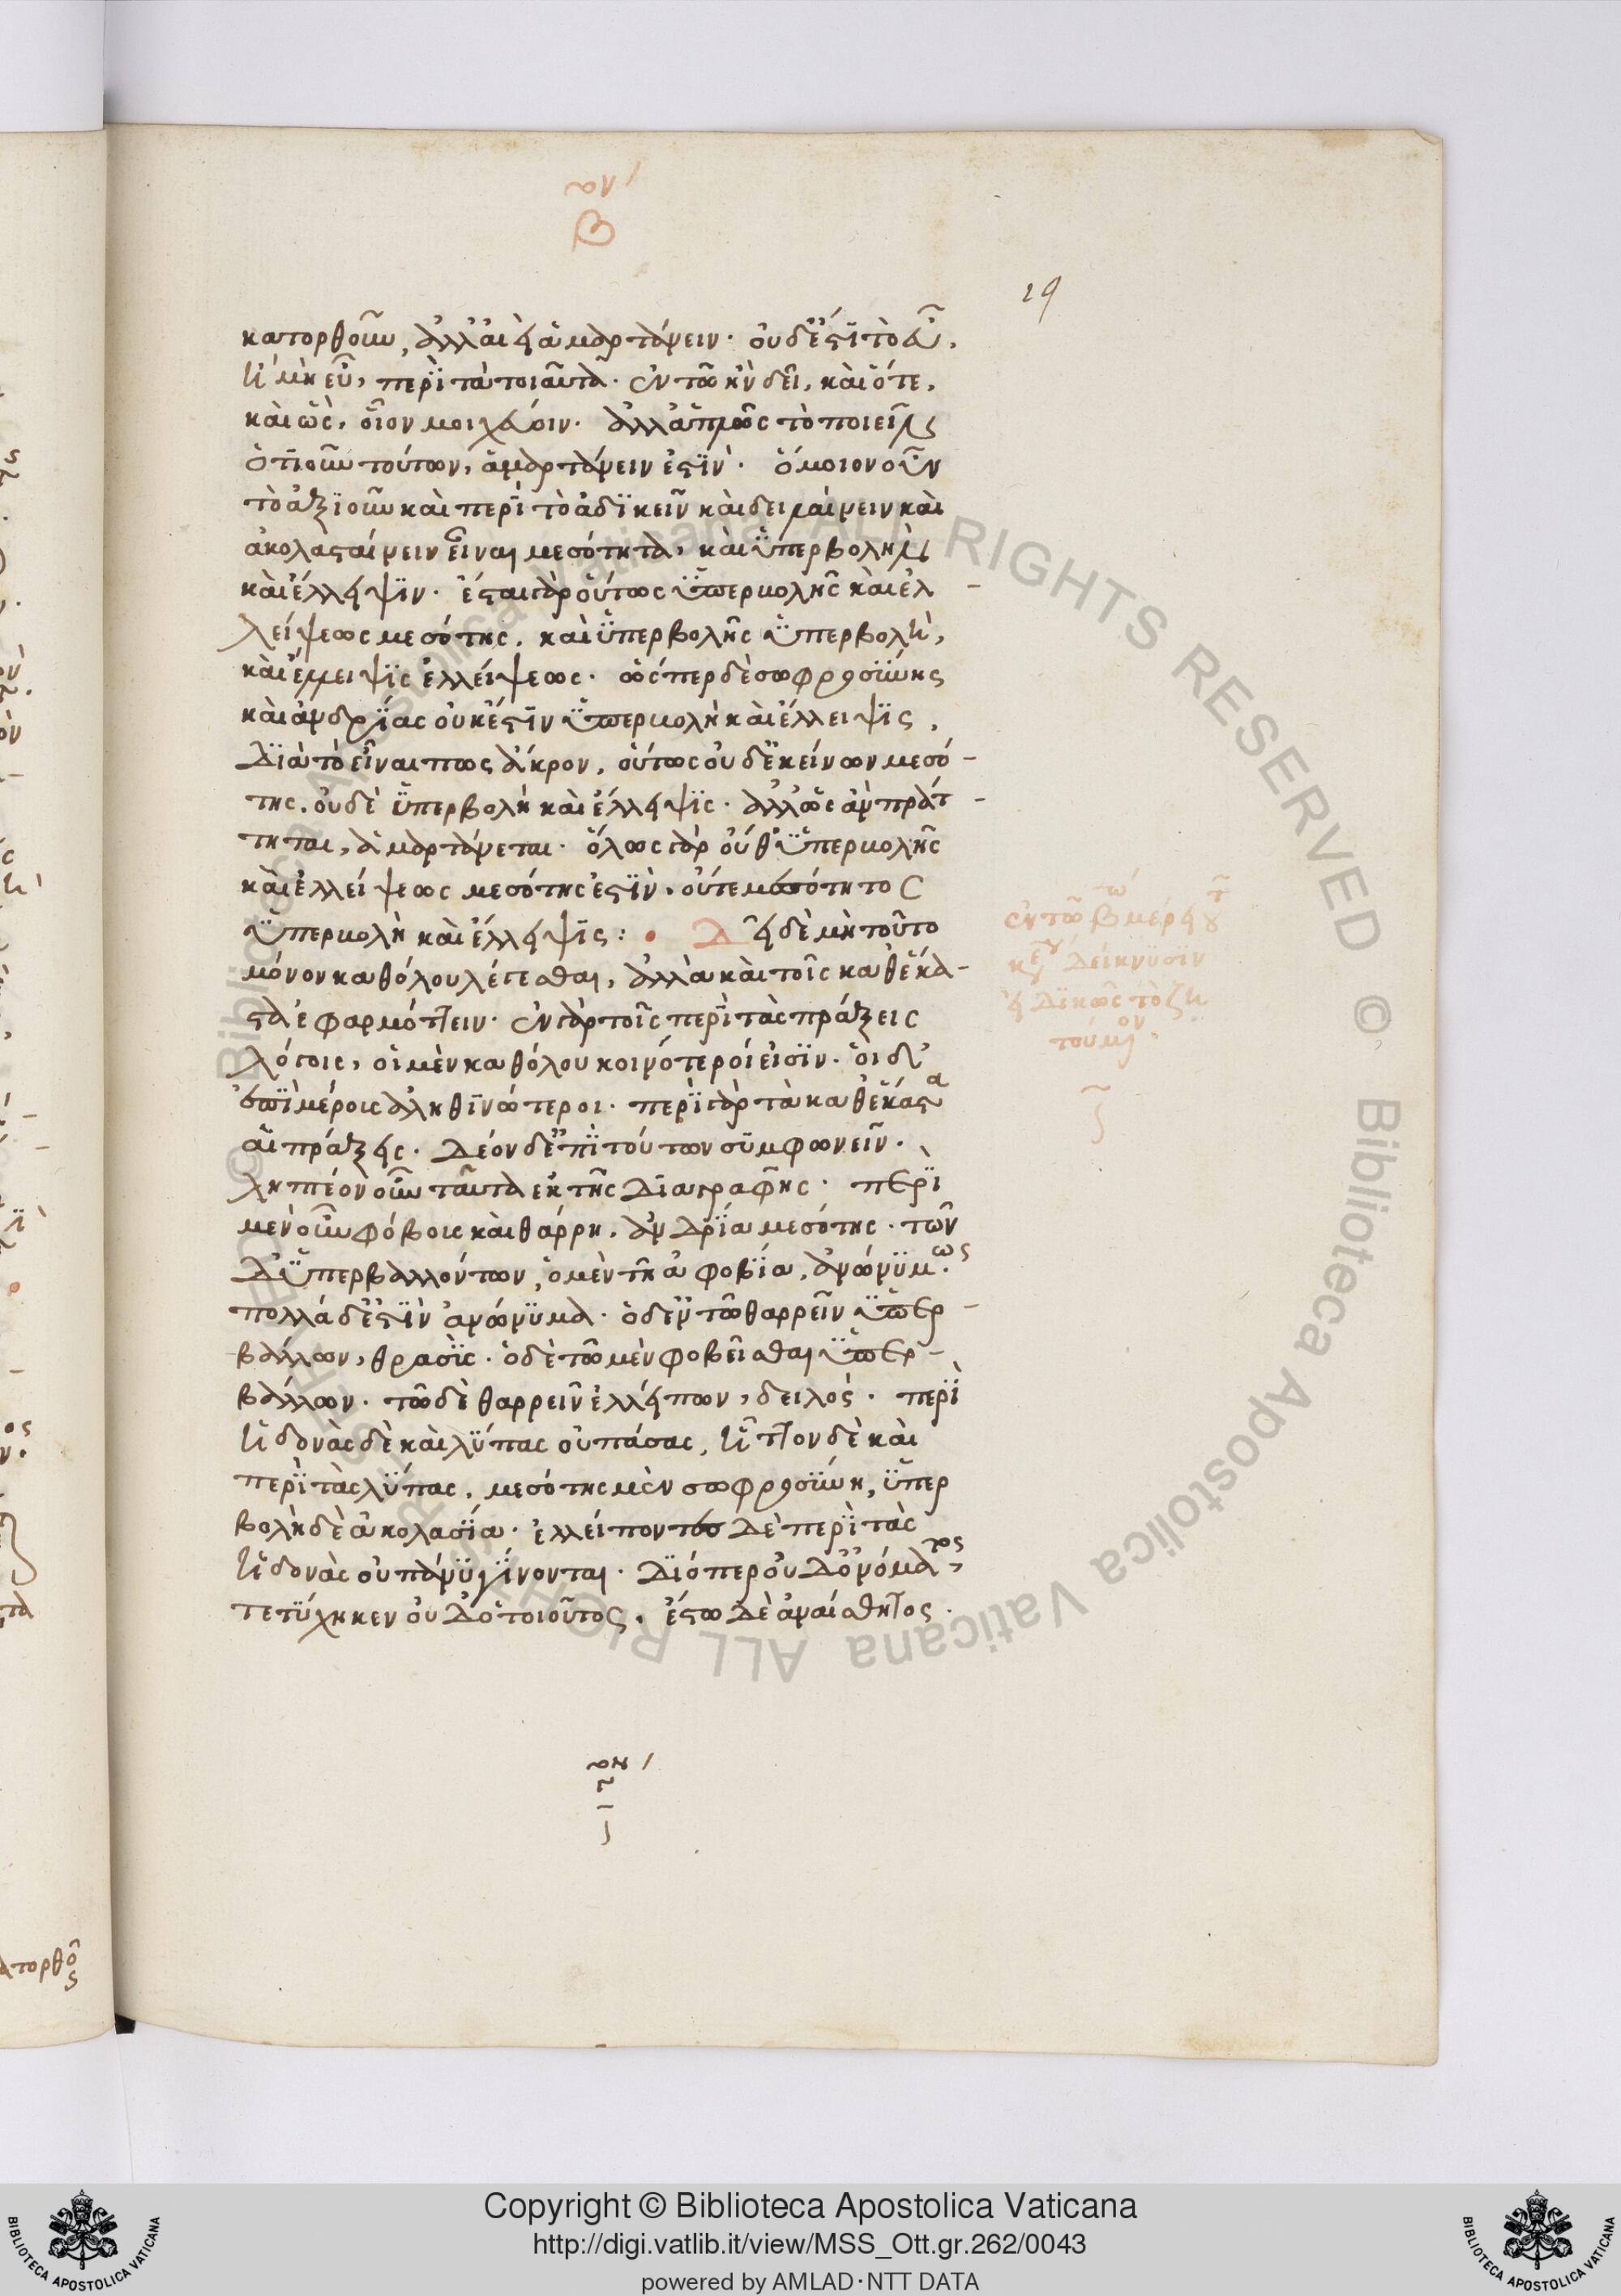 β
29
κατορθοῦν, ἀλλ' ἀεὶ ἁμαρτάνειν. οὐδ' ἔστι τὸ εὖ,
ἢ μὴ εὖ, περὶ τὰ τοιαῦτα. ἐν τῶ ἣν δεῖ, καὶ ὅτε,
καὶ ὡς, οἷον μοιχεύειν. ἀλλ' ἁπλῶς τὸ ποιεῖν
ὁτιοῦν τούτων, ἁμαρτάνειν ἐστίν. ὅμοιον οὖν
τὸ ἀξιοῦν καὶ περὶ τὸ ἀδικεῖν καὶ δειλαίνειν καὶ
ἀκολασταίνειν εἶναι μεσότητα, καὶ ὑπερβολὴν
καὶ ἔλλειψιν. ἔσται γὰρ οὕτως ὑπερβολῆς καὶ ἐλ-
λείψεως μεσότης, καὶ ὑπερβολῆς ὑπερβολὴ,
καὶ ἔλλειψις ἐλλείψεως. ὥσπερ δὲ σωφροσύνης
καὶ ἀνδρίας οὐκ ἔστιν ὑπερβολὴ καὶ ἔλλειψις,
Διὰ τὸ εἶναι πως ἄκρον, οὕτως οὐδ' ἐκείνων μεσό-
της, οὐδὲ ὑπερβολὴ καὶ ἔλλειψις. ἀλλ' ὡς ἂν πράτ-
τηται, ἁμαρτάνεται. ὅλως γὰρ οὔθ' ὑπερβολῆς
καὶ ἐλλείψεως μεσότης ἐστὶν, οὔτε μεσότητος
ὑπερβολὴ καὶ ἔλλειψις: Δεῖ δὲ μὴ τοῦτο
μόνον καθόλου λέγεσθαι, ἀλλὰ καὶ τοῖς καθ' ἕκα-
στα ἐφαρμόττειν. ἐν γὰρ τοῖς περὶ τὰς πράξεις
λόγοις, οἱ μὲν καθόλου κοινότεροί εἰσιν. οἱ δ'
ἐπὶ μέρους ἀληθινώτεροι. περὶ γὰρ τὰ καθ' ἕκαστα
αἱ πράξεις. Δέον δ' ἐπὶ τούτων συμφωνεῖν.
ληπτέον οὖν ταῦτα ἐκ τῆς Διαγραφῆς. περὶ
μὲν οὖν φόβους καὶ θάρρη, ἀνδρία μεσότης. τῶν
Δ' ὑπερβαλλόντων, ὁ μὲν τῆ ἀφοβία, ἀνώνυμος.
πολλὰ δ' ἐστὶν ἀνώνυμα. ὁ δ' ἐν τῶ θαρρεῖν ὑπερ-
βάλλων, θρασὺς. ὁ δὲ τῶ μὲν φοβεῖσθαι ὑπερ-
βάλλων. τῶ δὲ θαρρεῖν ἐλλείπων, δειλός. περὶ
ἡδονὰς δὲ καὶ λύπας οὐ πάσας, ἧττον δὲ καὶ
περὶ τὰς λύπας, μεσότης μὲν σωφροσύνη, ὑπερ
βολὴ δὲ ἀκολασία. ἐλλείποντες Δὲ περὶ τὰς
ἡδονὰς οὐ πάνυ γίνονται. Διόπερ οὐδ' ὀνόματος
τετύχηκεν οὐδ' ὁ τοιοῦτος. ἔστω Δὲ ἀναίσθητος.
ἐν τῶ β μέρει
δείκνυσιν